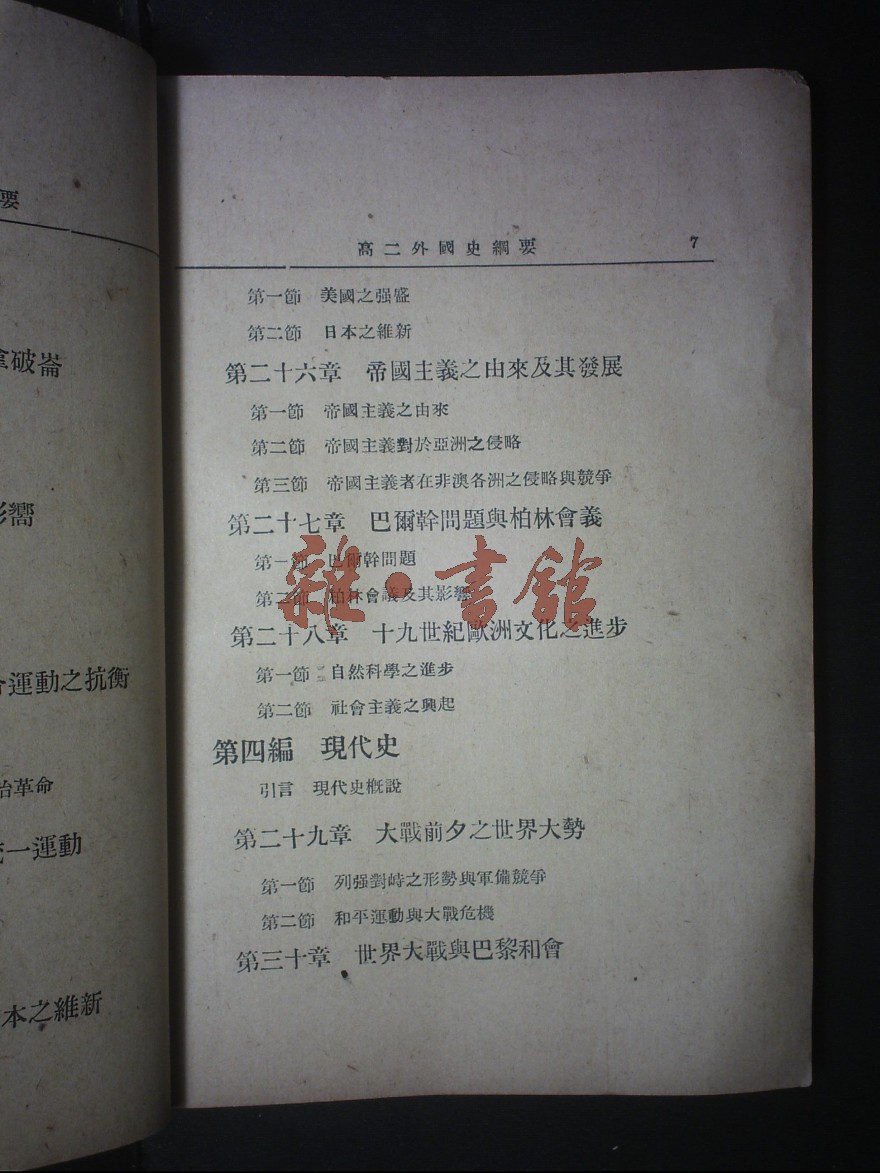 要
拿破崙
影嚮
合運動之抗衡
治革命
統一運動
本之維新
高二外國史綱要 7
第一節 美國之强盛
第二節 日本之維新
第二十六章 帝國主義之由來及其發展
第一節 帝國主義之由來
第二節 帝國主義對於亞洲之侵略
第三節 帝國主義者在非澳各洲之侵略與競爭
第二十七章 巴爾幹問題與柏林會義
第一節 巴爾幹問題
第二節 柏林會議及其影響
第二十八章 十九世紀歐洲文化之進步
第一節 自然科學之進步
第二節 社會主義之興起
第四編 現代史
引言 現代史概說
第二十九章 大戰前夕之世界大勢
第一節 列强對峙之形勢與軍備競爭
第二節 和平運動與大戰危機
第三十章 世界大戰與巴黎和會
雜·書館